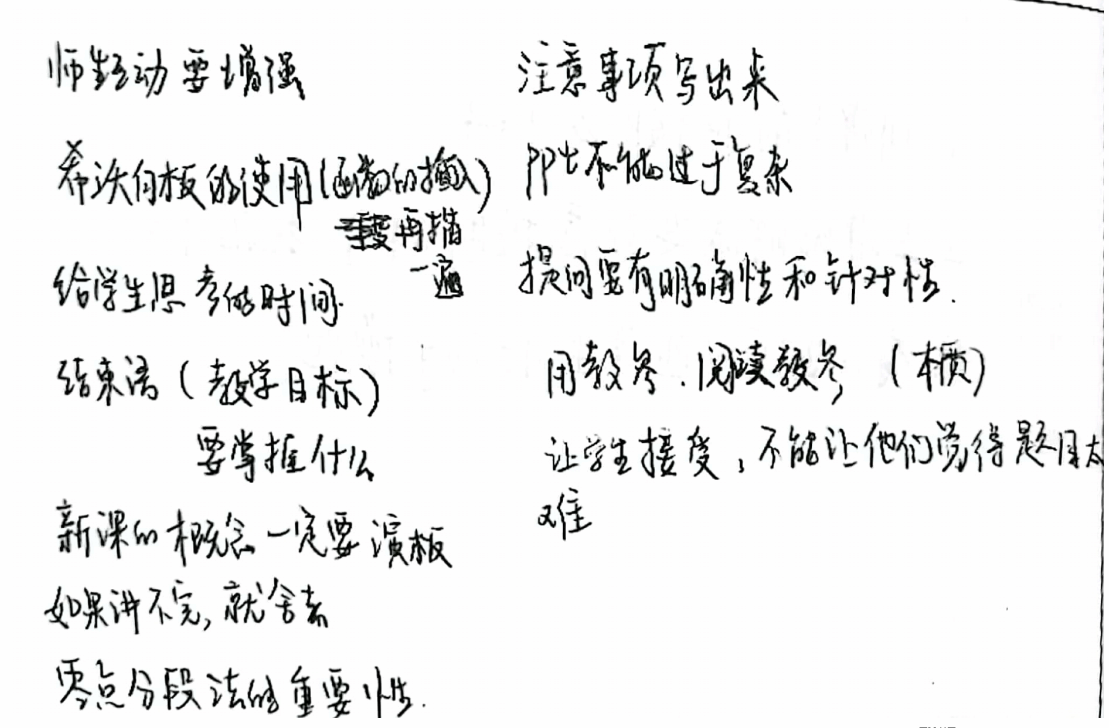 师生互动要增强
希沃白板的使用(函数的插入)
再描
一遍
给学生思考的时间.
结束语(教学目标)
要掌握什么
新课的概念一定要演板
如果讲不完,就舍去
零点分段法的重要性.
注意事项写出来
PPt不能过于复杂
提问要有明确性和针对性.
用教参.阅读教参(本质)
让学生接受,不能让他们觉得题目太
难